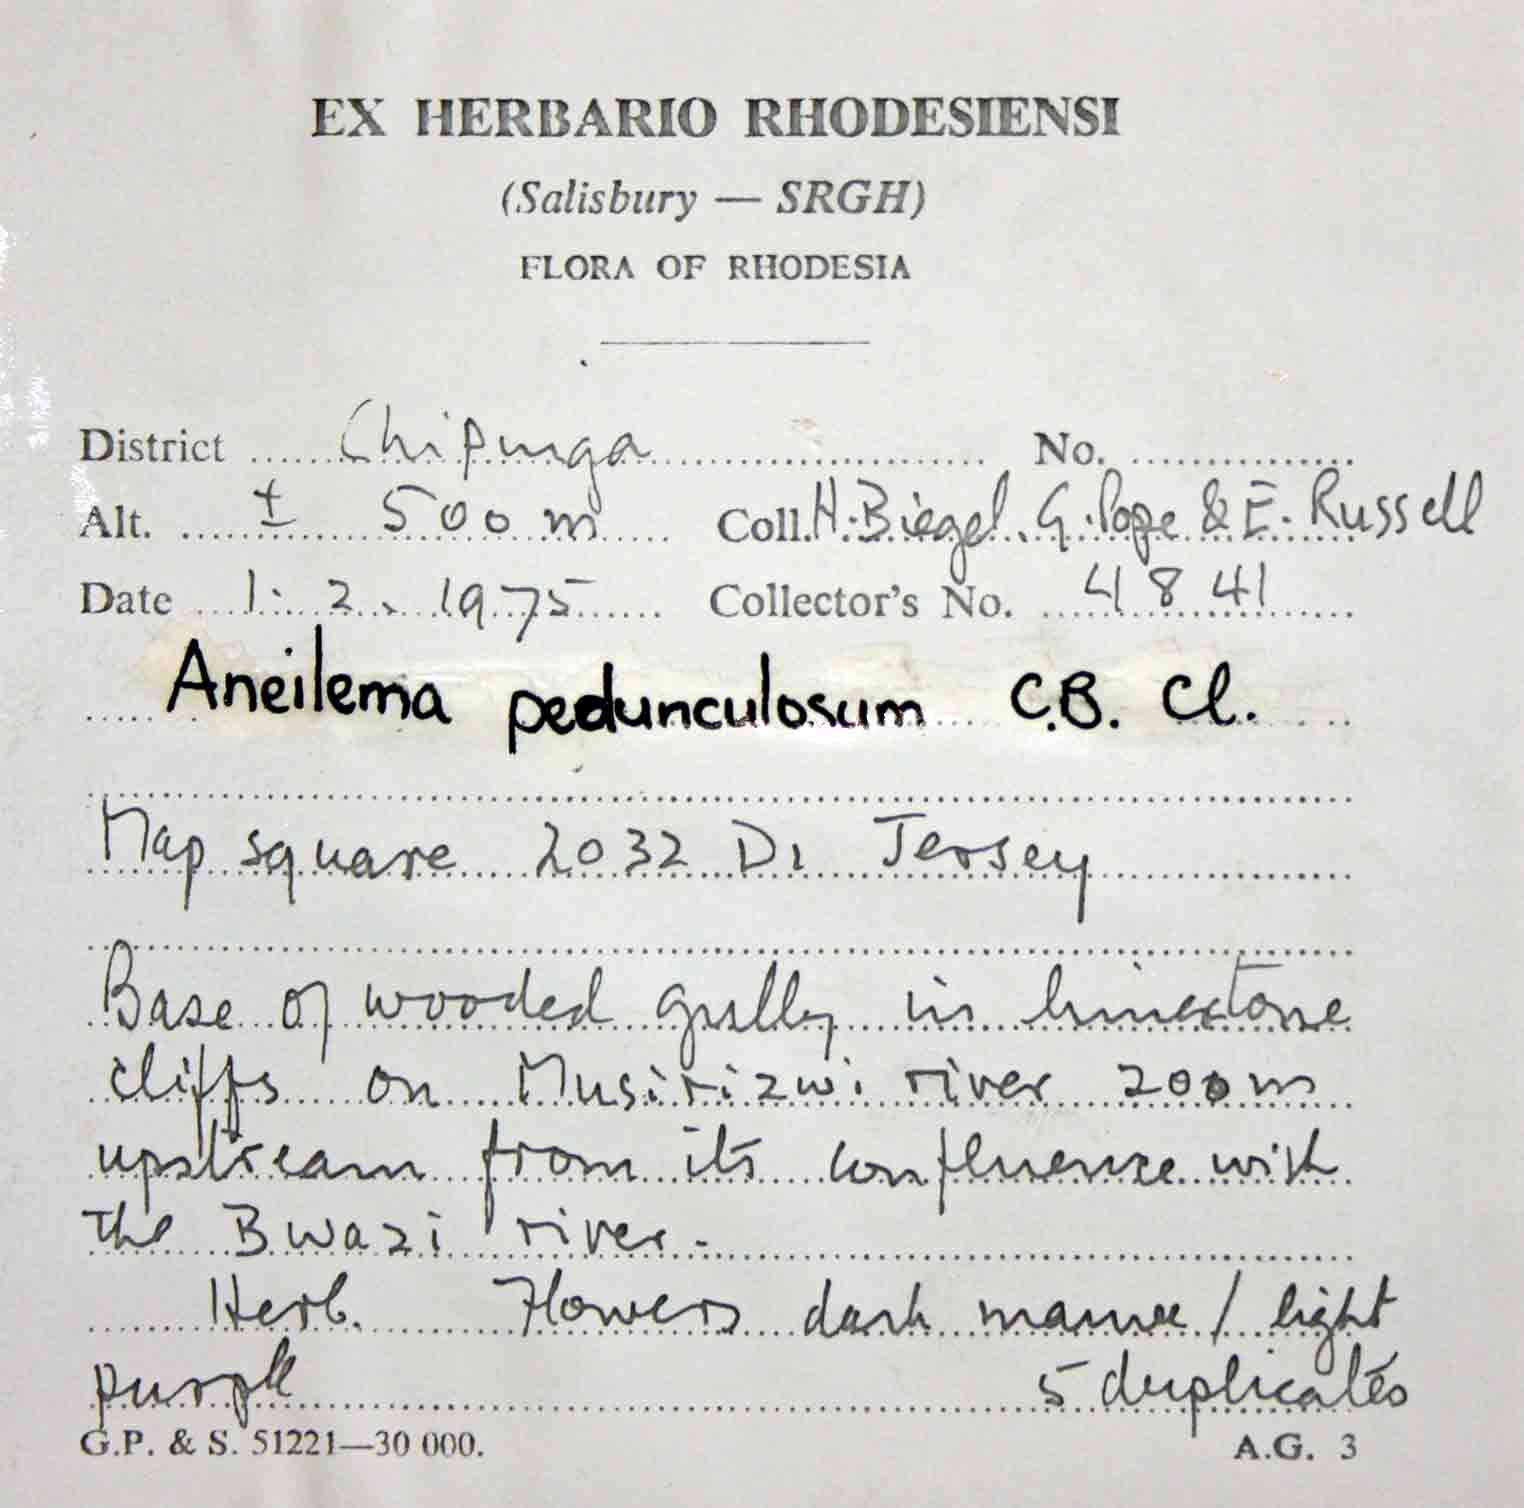 EX HERBARIO RHODESIENSI
(Salisbury — SRGH)
FLORA OF RHODESIA
District Chipinga No.
Alt. ± 500 m Coll. H. Biegel, G. Pope & E. Russell
Date 1. 2. 1975 Collector's No. 4841
Aneilema pedunculosum C.B. Cl.
Map square 2032 D1 Jersey
Base of wooded gully in limestone
cliffs on Musirizwi river 200 m
upstream from its confluence with
the Bwazi river.
Herb. Flowers dark mauve / light
purple 5 duplicates
G.P. & S. 51221—30 000. A.G. 3